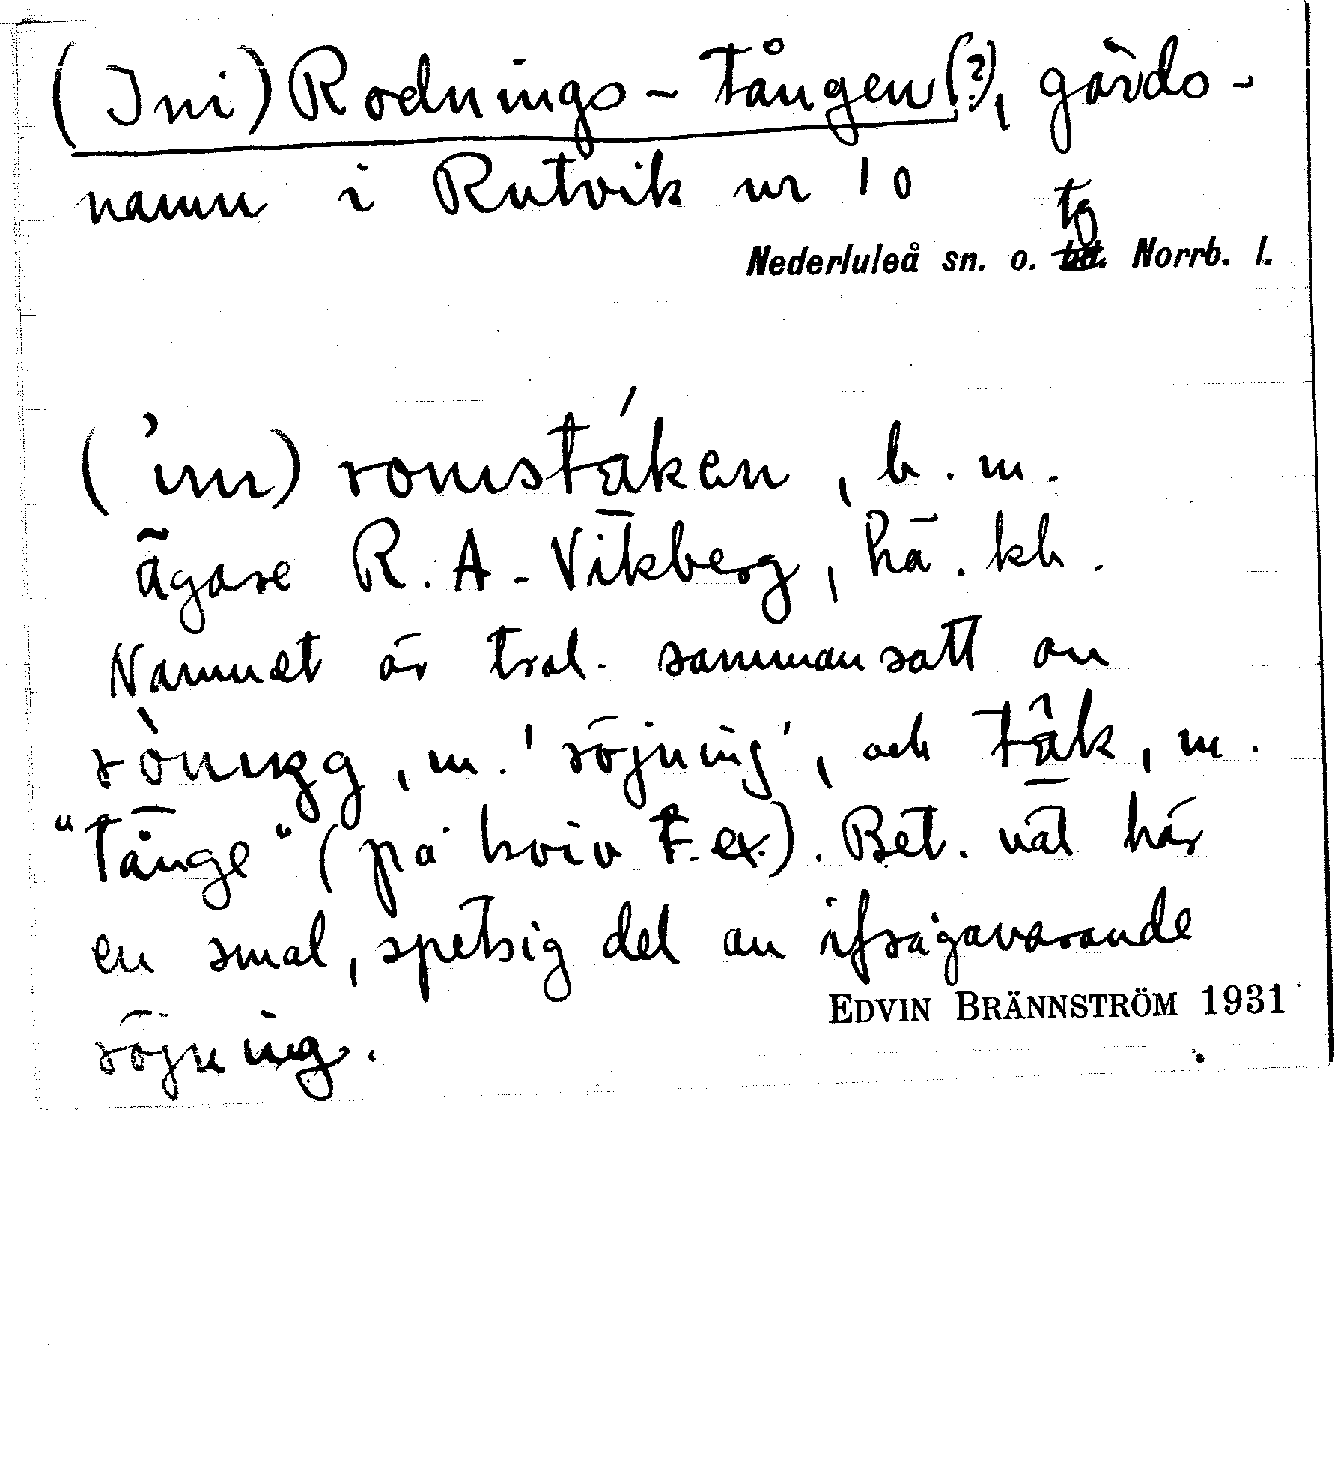 (Ini) Rodnings-tången(?), gårds-
namn i Rutvik nr 10
Nederluleå sn. o. tg Norrb. l.
(ìnı) romstáken, b. m.
ägare R. A. Vikberg, hä. kb.
Namnet är trol. sammansatt av
rònıŋg, m. 'röjning', och tâk, m.
"tånge" (på kniv t. ex.). Bet. väl här
en smal, spetsig del av ifrågavarande
EDVIN BRÄNNSTRÖM 1931
röjning.